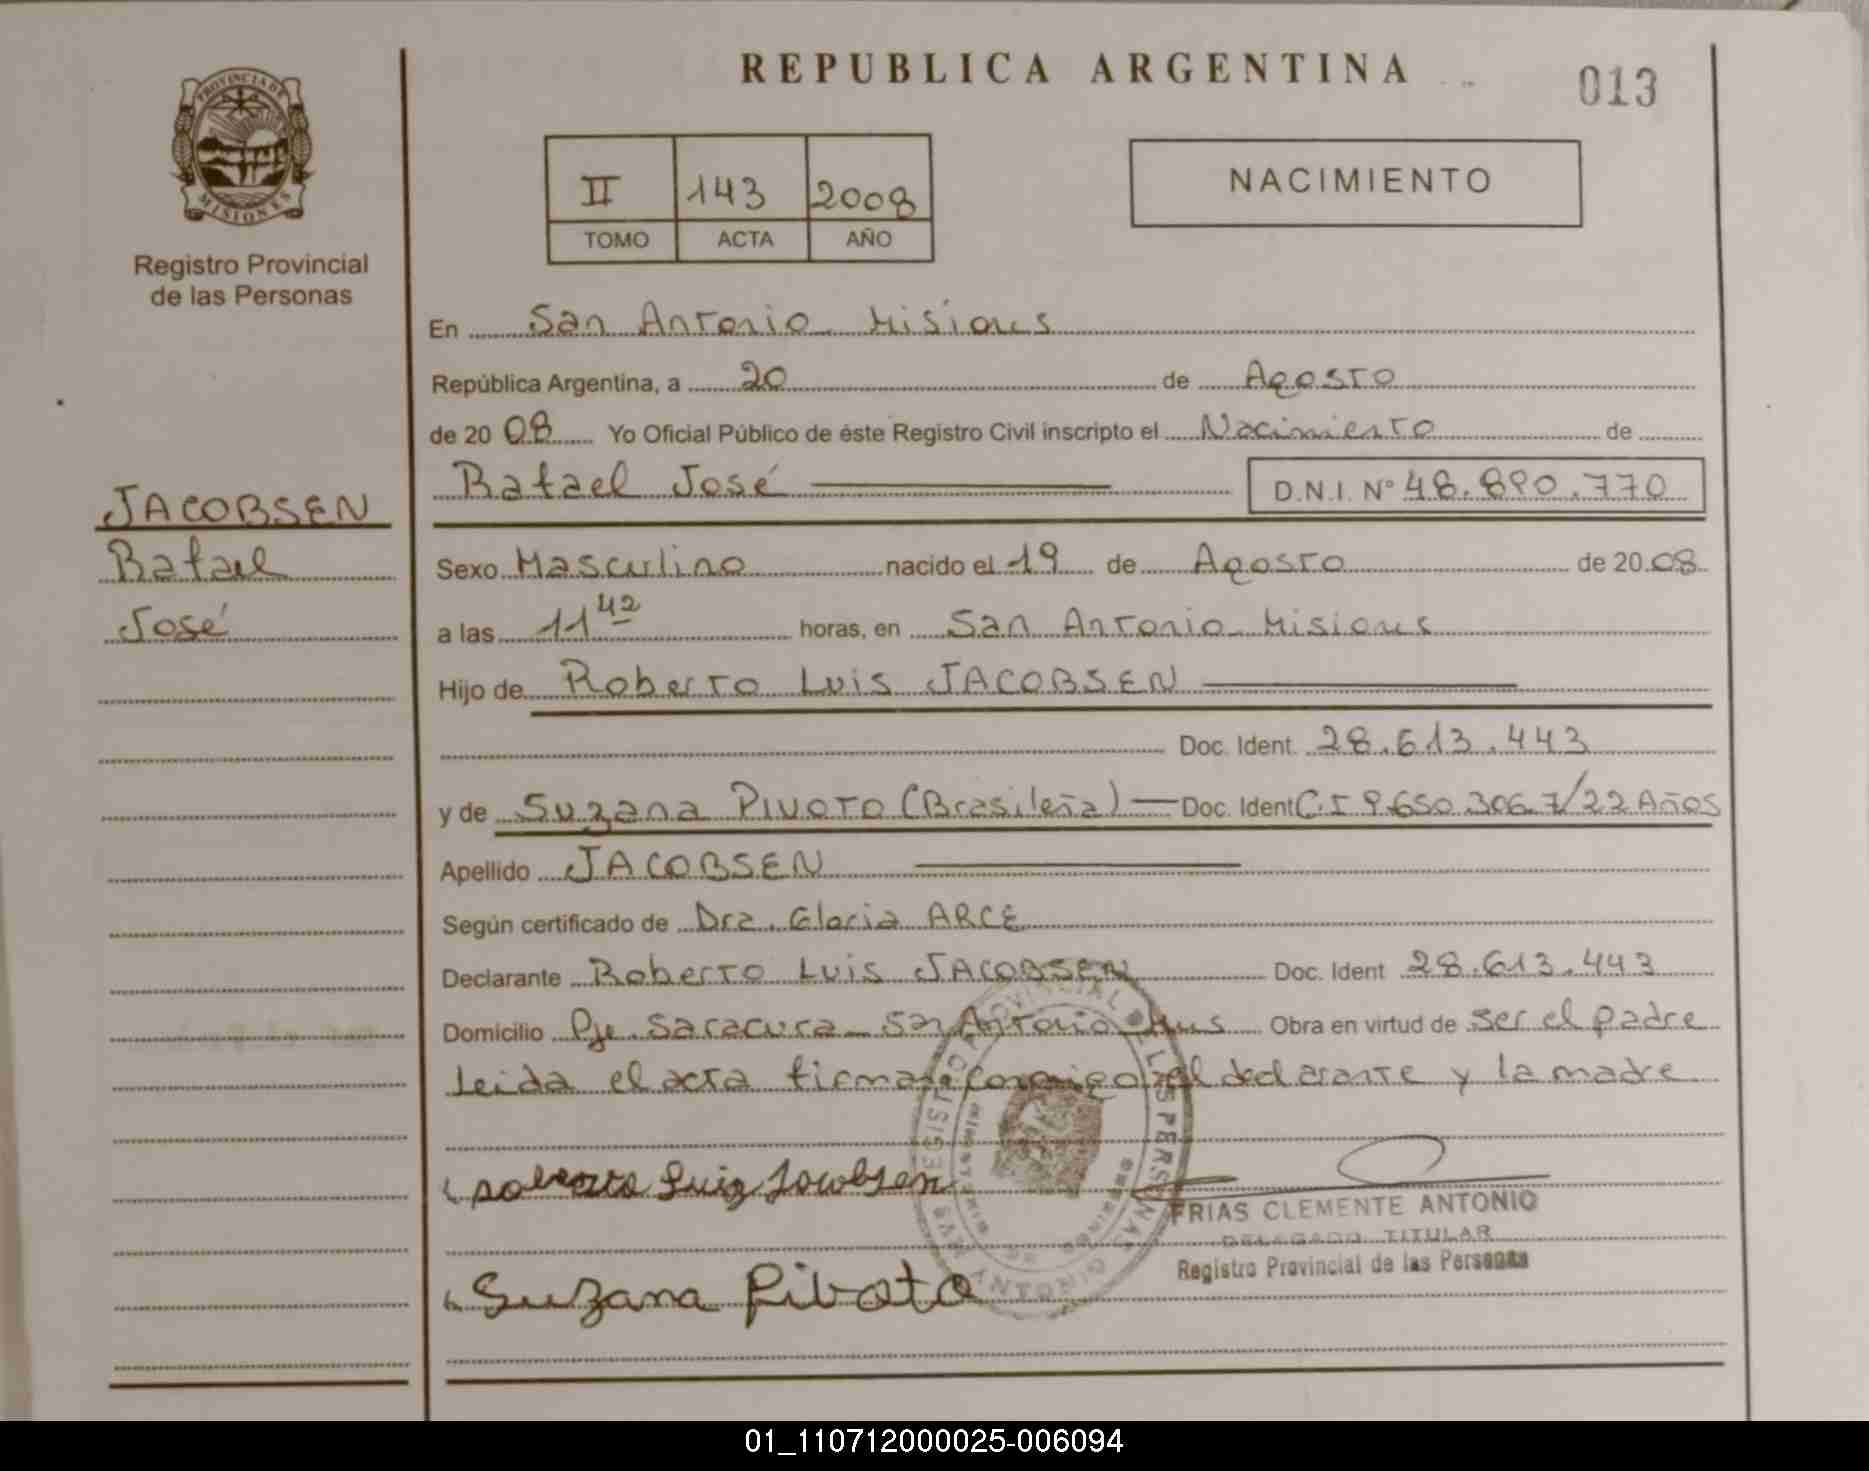 REPUBLICA ARGENTINA
013
PROVINCIA DE
MISIONES
Registro Provincial
de las Personas
II 143 2008
TOMO ACTA AÑO
NACIMIENTO
En San Antonio Misiones
República Argentina, a 20 de Agosto
de 20 08 Yo Oficial Público de éste Registro Civil inscripto el Nacimiento de
Rafael José D.N.I. Nº 48.890.770
JACOBSEN
Rafael
José
Sexo Masculino nacido el 19 de Agosto de 20 08
a las 11 42 horas, en San Antonio Misiones
Hijo de Roberto Luis JACOBSEN
Doc. Ident. 28.613.443
y de Suzana PIVOTO (Brasileña) — Doc. Ident C.I 9.650.306.7/22 Años
Apellido JACOBSEN
Según certificado de Dra. Gloria ARCE
Declarante Roberto Luis JACOBSEN Doc. Ident 28.613.443
Domicilio Pje. Saracura San Antonio Mns Obra en virtud de ser el padre
Leida el acta firman conmigo el declarante y la madre
Roberto Luiz Jacobsen
FRIAS CLEMENTE ANTONIO
DELEGADO TITULAR
Registro Provincial de las Personas
Suzana Pivoto
REGISTRO PROVINCIAL DE LAS PERSONAS
01_110712000025-006094